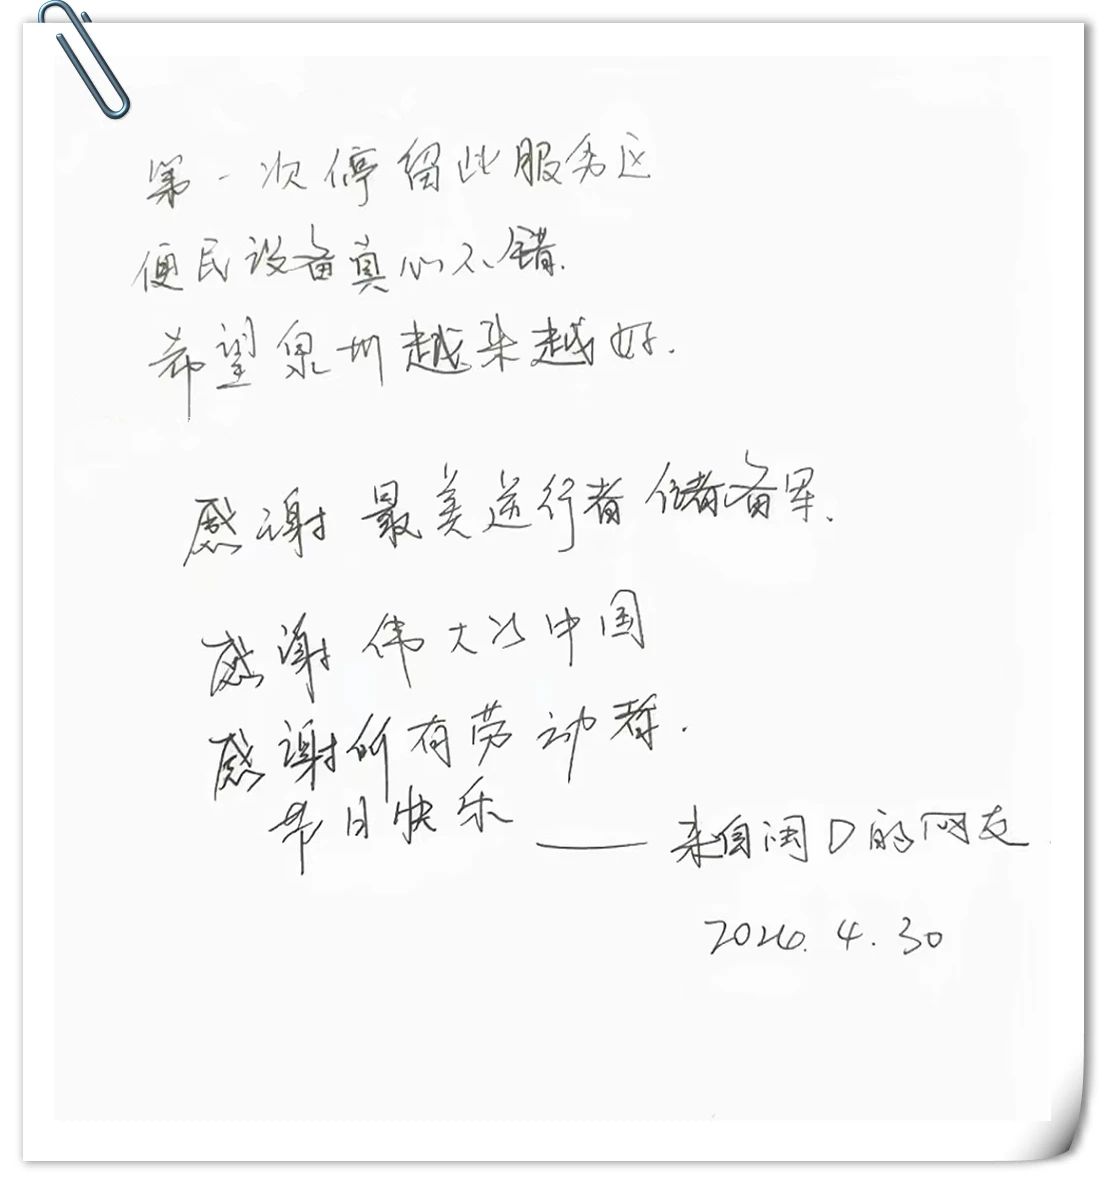 第一次停留此服务区
便民设备真心不错.
希望泉州越来越好.
感谢 最美逆行者 储备军.
感谢 伟大的中国
感谢所有劳动者.
节日快乐 —— 来自闽D的网友
2026.4.30